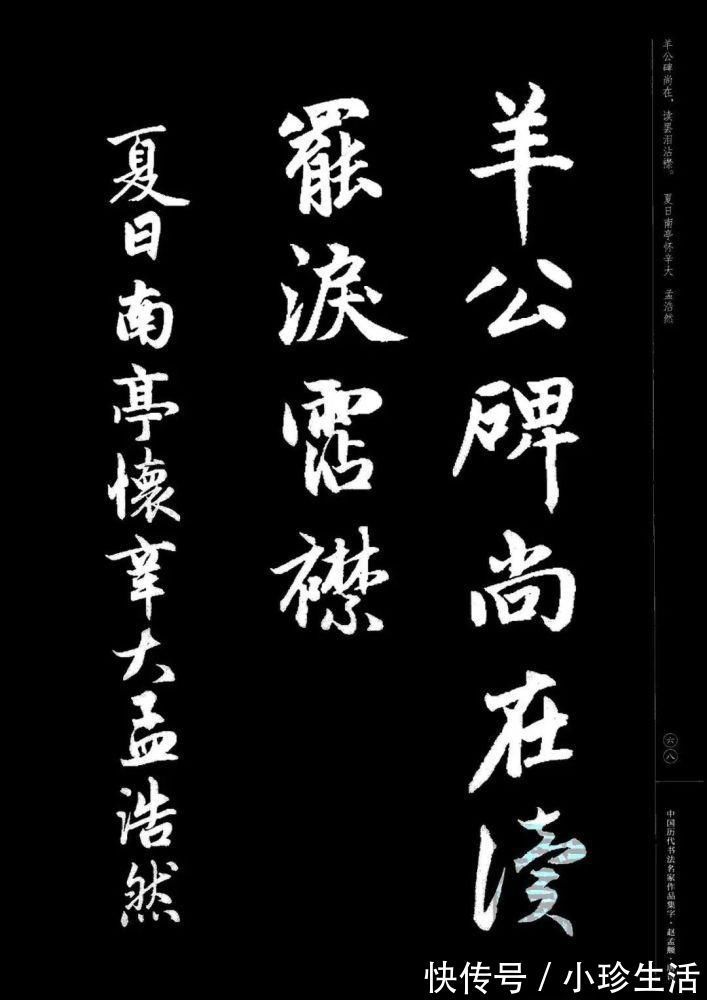 羊公碑尚在讀
罷淚霑襟
夏日南亭懷辛大孟浩然
羊公碑尚在，读罢泪沾襟。 夏日南亭怀辛大 孟浩然
六八
中国历代书法名家作品集字·赵孟頫
快传号 / 小珍生活